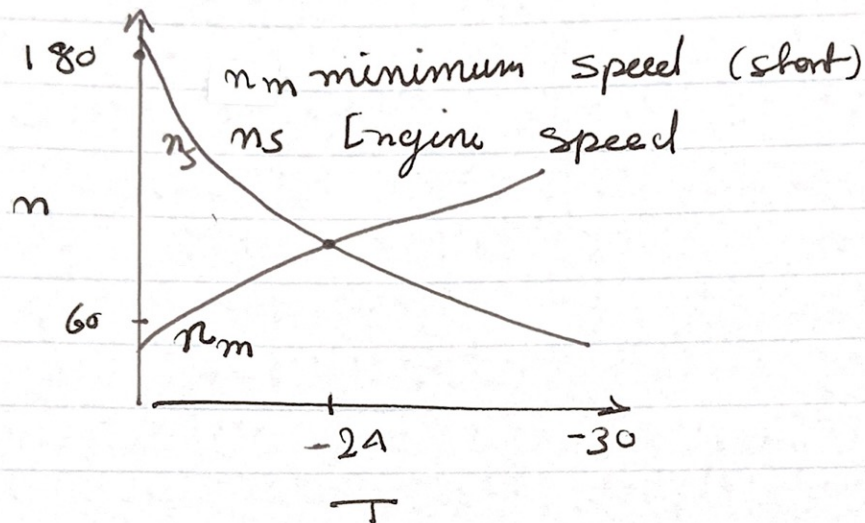 180
n_m minimum speed (start)
n_s n_s Engine speed
n
60
n_m
-24 -30
T